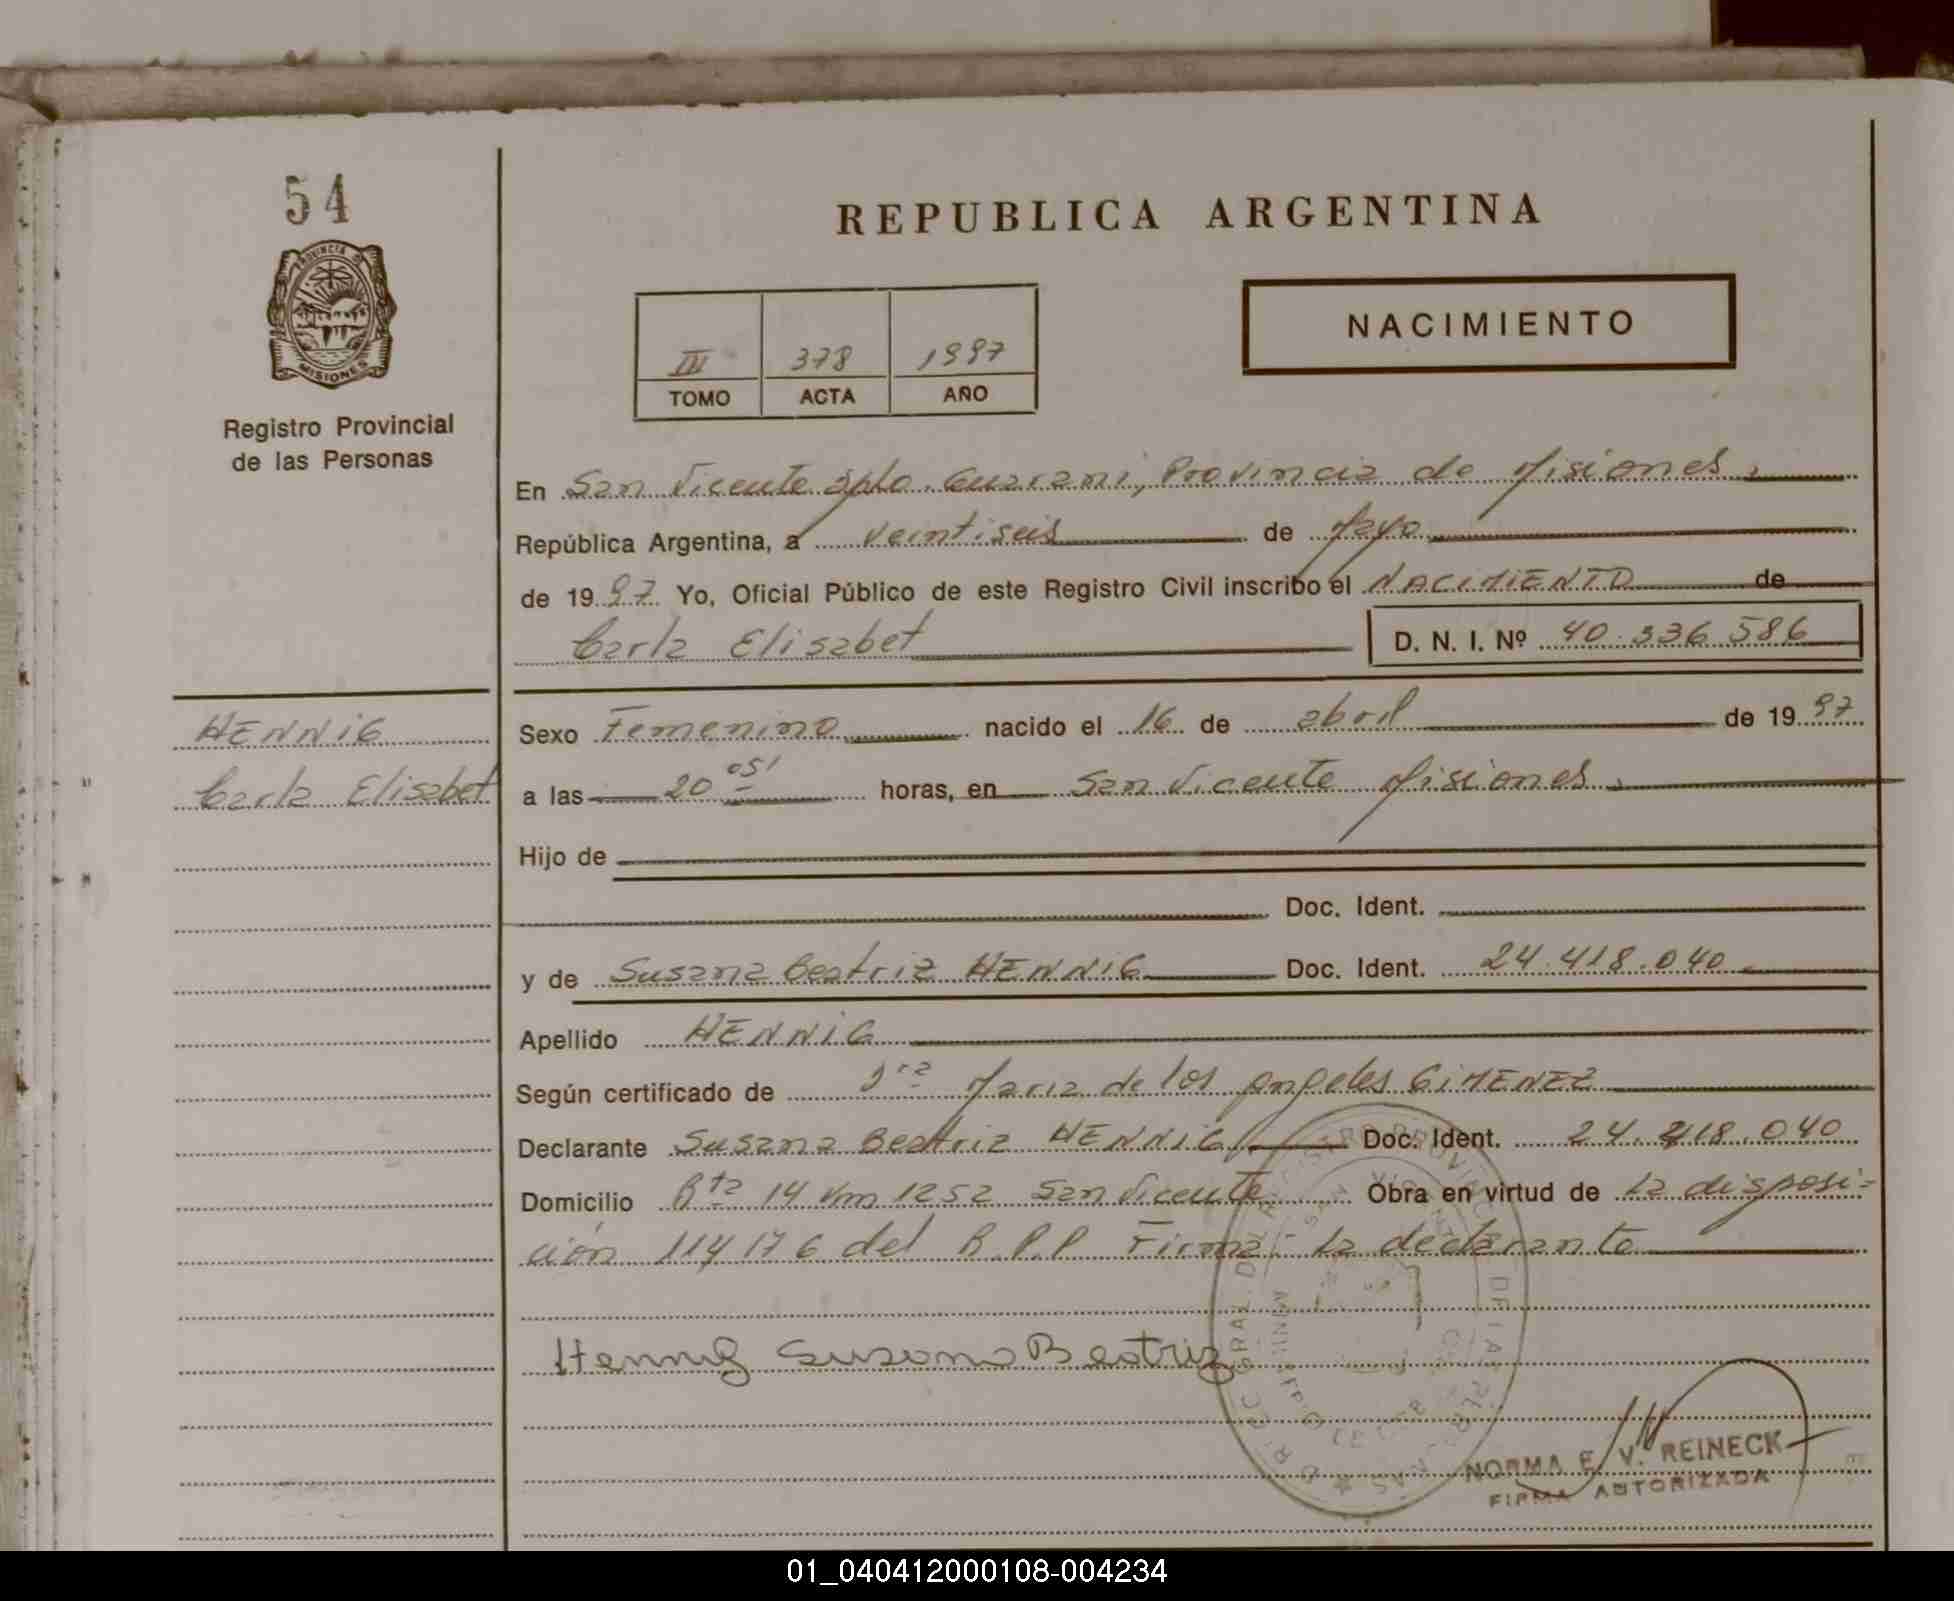 54
PROVINCIA DE
MISIONES
Registro Provincial
de las Personas
REPUBLICA ARGENTINA
NACIMIENTO
III 378 1997
TOMO ACTA AÑO
En San Vicente Dpto. Guarani, Provincia de Misiones.
República Argentina, a veintiseis de Mayo
de 1997 Yo, Oficial Público de este Registro Civil inscribo el NACIMIENTO de
Carla Elisabet D. N. I. Nº 40.336.586
HENNIG
Carla Elisabet
Sexo Femenino nacido el 16 de abril de 1997
a las 20 05' horas, en San Vicente Misiones.
Hijo de
Doc. Ident.
y de Susana Beatriz HENNIG Doc. Ident. 24.418.040
Apellido HENNIG
Según certificado de Dra Maria de los Angeles GIMENEZ
Declarante Susana Beatriz HENNIG Doc. Ident. 24.418.040
Domicilio Rta 14 Km 1252 San Vicente Obra en virtud de la disposi-
ción 114/76 del R.P.P Firma: la declarante
Hennig Susana Beatriz
NORMA E. V. REINECK
FIRMA AUTORIZADA
01_040412000108-004234